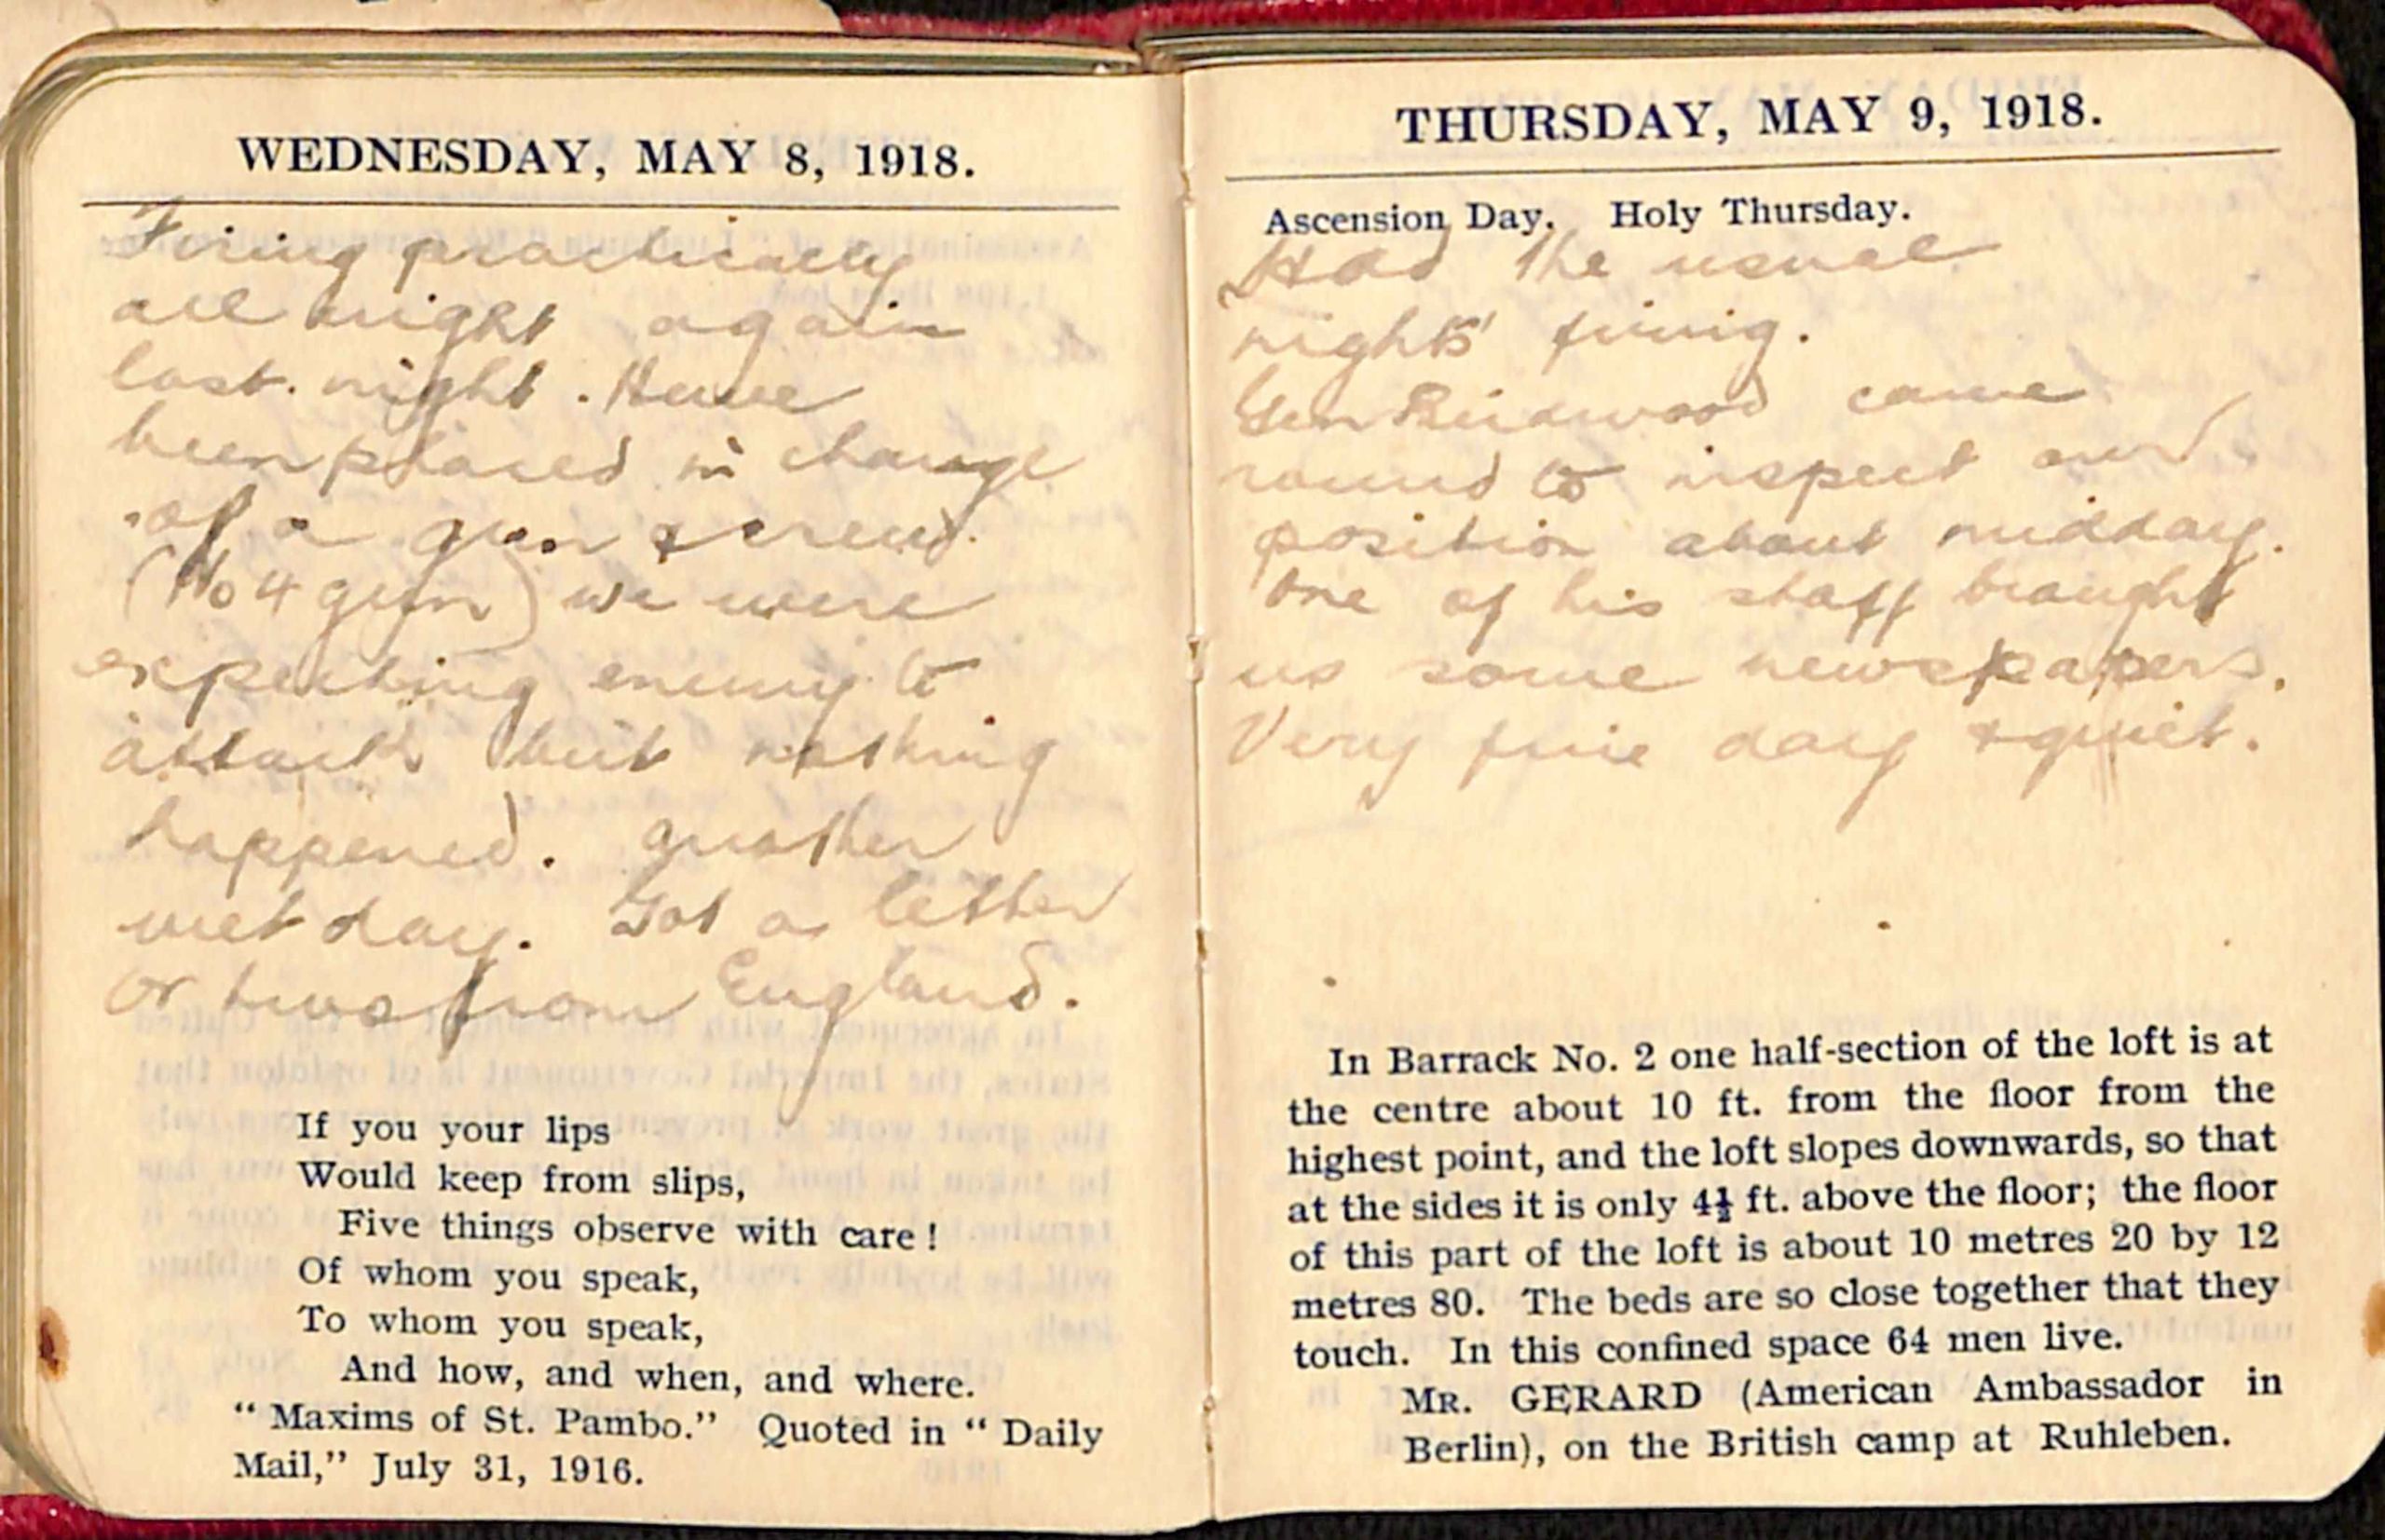 WEDNESDAY, MAY 8, 1918.
Firing practically
all night again
last night. Have
been placed in charge
of a gun & crew.
(No 4 gun) we were
expecting enemy to
attack but nothing
happened. Another
wet day. Got a letter
or two from England.
If you your lips
Would keep from slips,
Five things observe with care !
Of whom you speak,
To whom you speak,
And how, and when, and where.
“ Maxims of St. Pambo.” Quoted in “ Daily
Mail,” July 31, 1916.
THURSDAY, MAY 9, 1918.
Ascension Day. Holy Thursday.
Had the usual
nights' firing.
Gen Birdwood came
round to inspect our
position about midday.
One of his staff brought
us some newspapers.
Very fine day & quiet.
In Barrack No. 2 one half-section of the loft is at
the centre about 10 ft. from the floor from the
highest point, and the loft slopes downwards, so that
at the sides it is only 4½ ft. above the floor; the floor
of this part of the loft is about 10 metres 20 by 12
metres 80. The beds are so close together that they
touch. In this confined space 64 men live.
MR. GERARD (American Ambassador in
Berlin), on the British camp at Ruhleben.